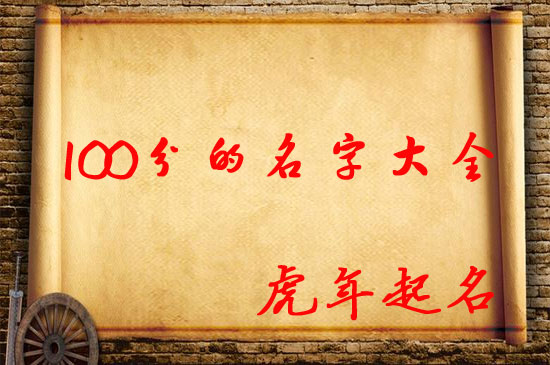 100分的名字大全
虎年起名